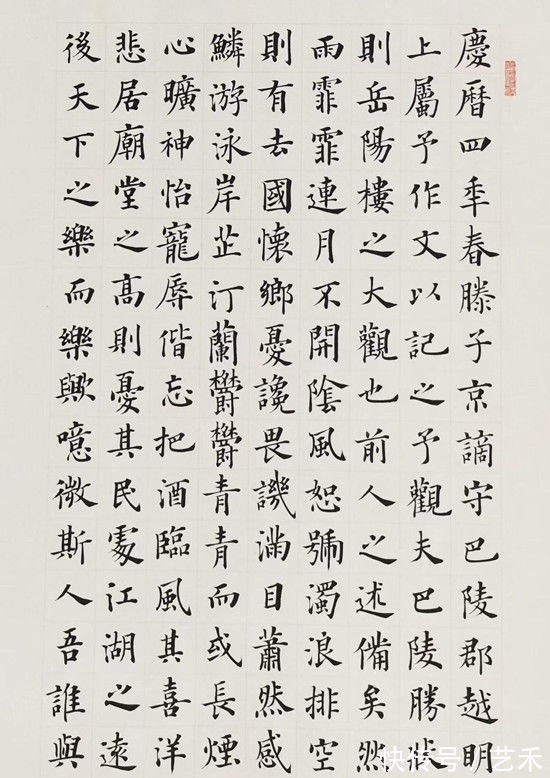 慶曆四年春滕子京謫守巴陵郡越明
上屬予作文以記之予觀夫巴陵勝狀
則岳陽樓之大觀也前人之述備矣然
雨霏霏連月不開陰風恕號濁浪排空
則有去國懷鄉憂讒畏譏滿目蕭然感
鱗游泳岸芷汀蘭鬱鬱青青而或長煙
心曠神怡寵辱偕忘把酒臨風其喜洋
悲居廟堂之高則憂其民處江湖之遠
後天下之樂而樂歟噫微斯人吾誰與
快传号/艺禾